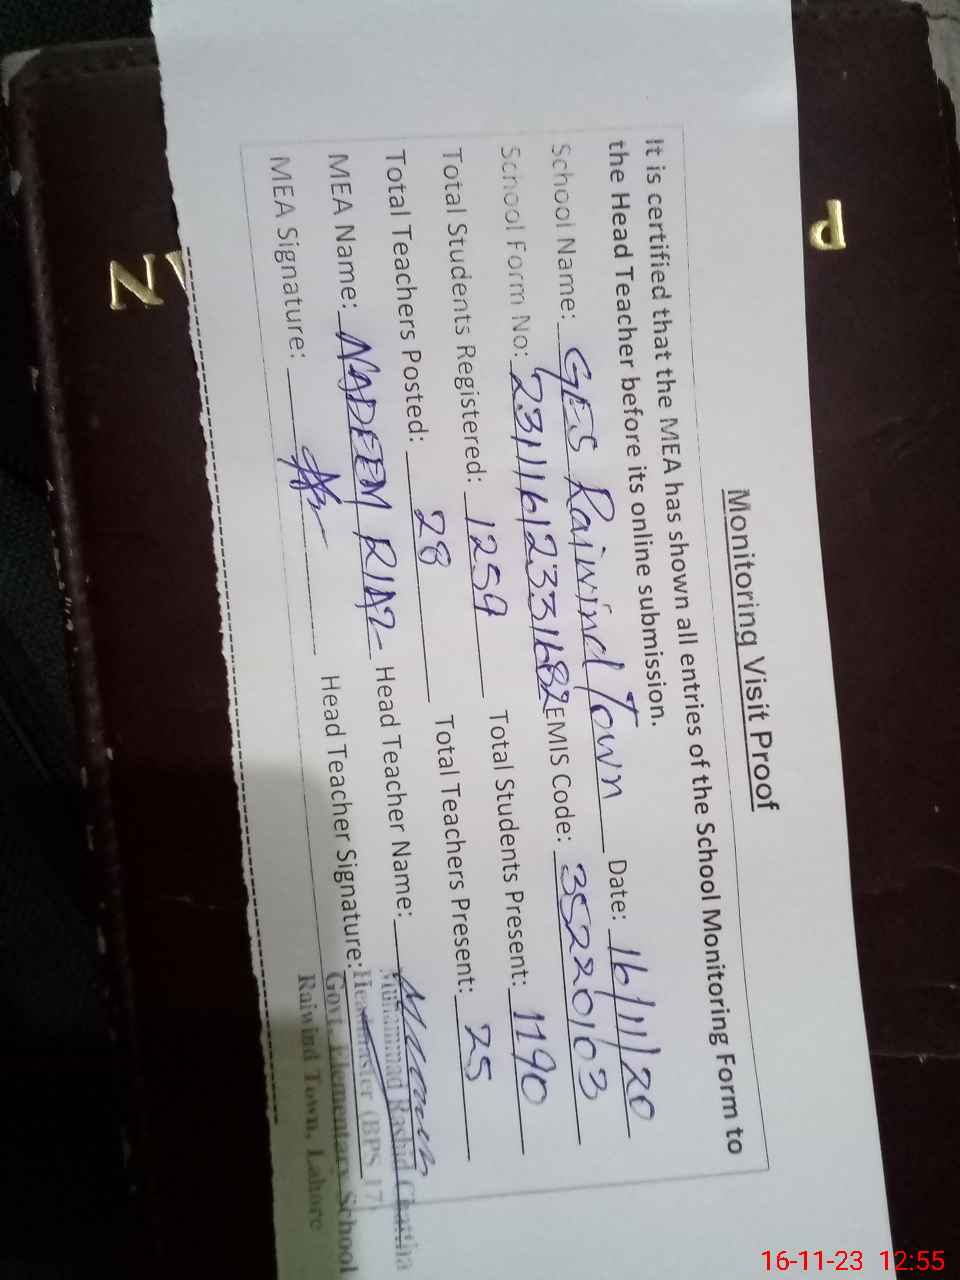 Monitoring Visit Proof
It is certified that the MEA has shown all entries of the School Monitoring Form to
the Head Teacher before its online submission.
School Name: GES Raiwind Town Date: 16/11/20
School Form No: 23111612331682 EMIS Code: 35220103
Total Students Registered: 1259 Total Students Present: 1190
Total Teachers Posted: 28 Total Teachers Present: 25
MEA Name: NADEEM RIAZ Head Teacher Name:
MEA Signature: Head Teacher Signature:
Muhammad Rashid Chattha
Headmaster (BPS 17)
Govt. Elementary School
Raiwind Town, Lahore
P
Z
16-11-23 12:55